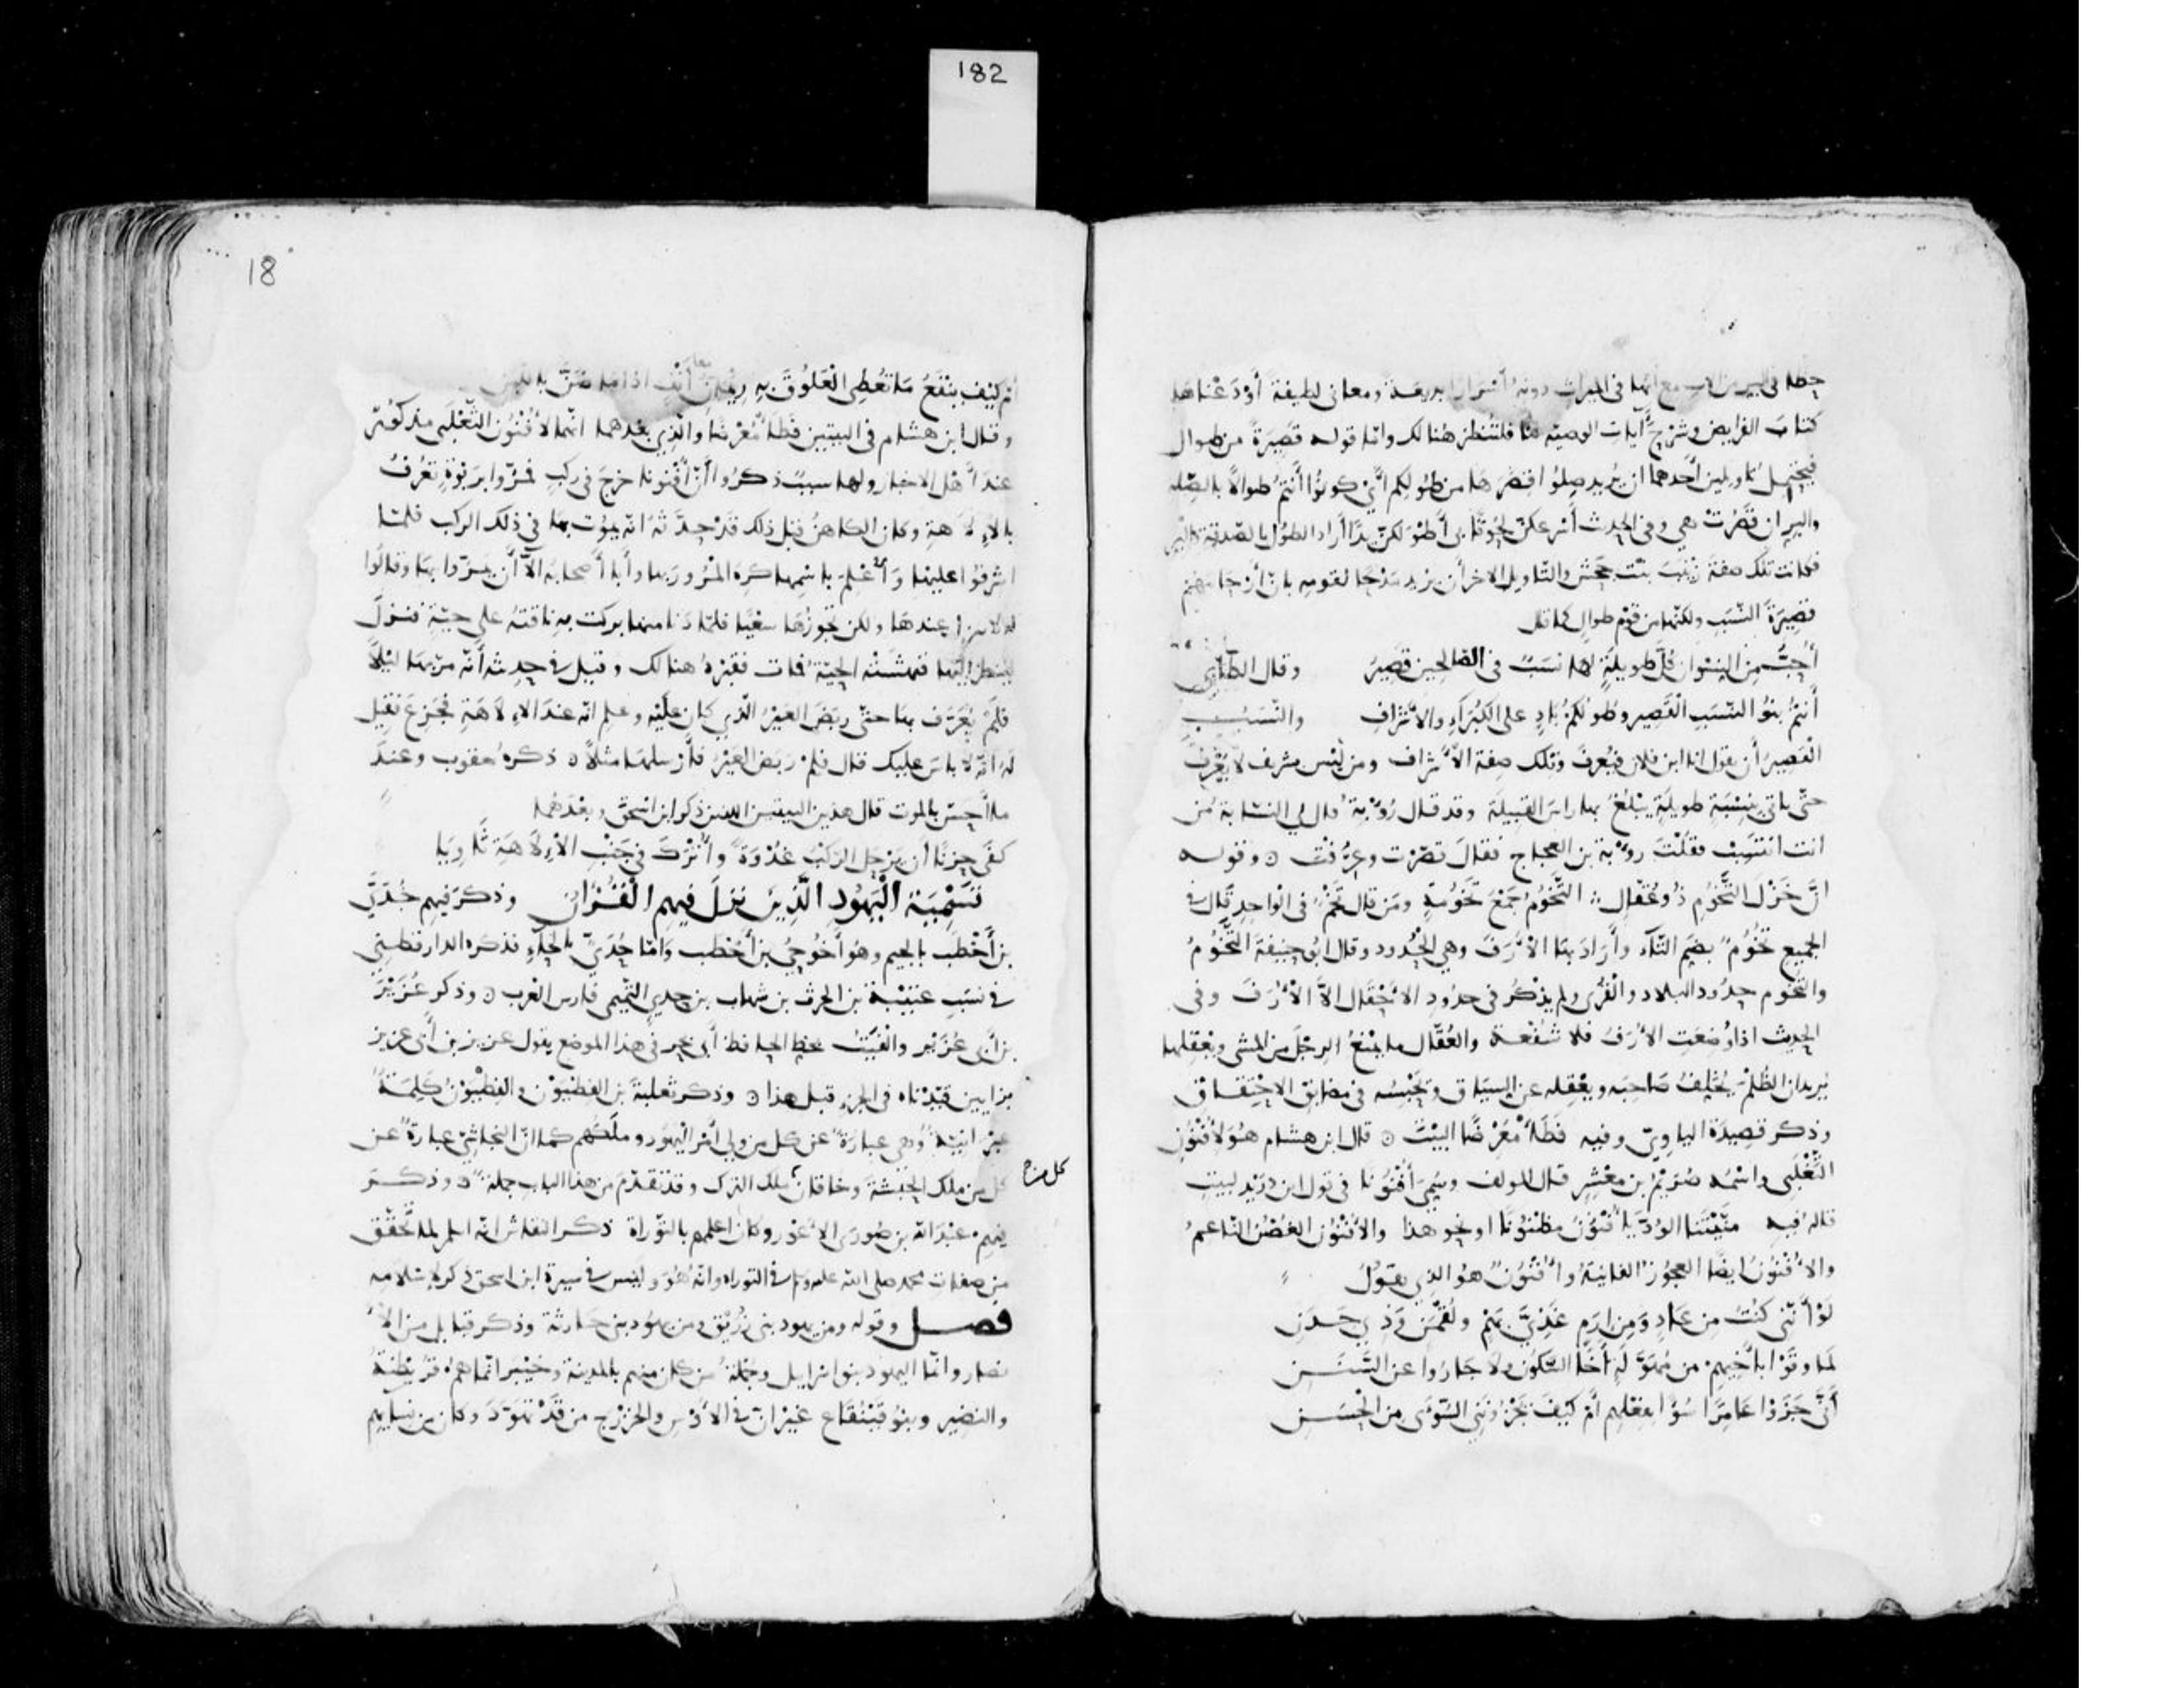 182
حظها في البر من الاب مع أنها في الميراث دونه أسرارا بديعة ومعاني لطيفة أودعناها
كتاب الفرايض وشرح آيات الوصية فلتنظر هنالك واما قوله قصيرة من طوال
فيحتمل تاويلين أحدهما ان يريد صلوا اقصرها من طولكم اي كونوا أنتم طوالا بالصله
والبر ان قصرت هي وفي الحديث أسرعكن لحوقا بي أطولكن يدا أراد الطول بالصدقة والبر
فكانت تلك صفة زينب بنت جحش والتاويل الاخر أن يريد مدحا لقومه بان أرحامهم
قصيرة النسب ولكنها من قوم طوال كما قال
أحب من النسوان كل طويلة لها نسب في الصالحين قصير وقال الطائي
أنتم بنو النسب القصير وطولكم باد على الكبراء والأشراف والنسب
القصير أن يقول انا ابن فلان فيعرف وتلك صفة الأشراف ومن ليس بشريف لا يعرف
حتى ياتي بنسبة طويلة يبلغ بها راس القبيلة وقد قال رؤبة قال لي النسابة من
انت انتسب فقلت رؤبة بن العجاج فقال قصرت وعرفت وقوله
ان خزل التخوم ذو عقال التخوم جمع تخومة ومن قال تخم في الواحد قال في
الجميع تخوم بضم التاء وأراد بها الأرف وهي الحدود وقال ابو حنيفة التخوم
والتخوم حدود البلاد والقرى ولم يذكر في حدود الاحقال الا الأرف وفي
الحديث اذا وضعت الأرف فلا شفعة والعقال ما يمنع الرجل من المشي ويعقلها
يريد ان الظلم يخلف صاحبه ويعقله عن السباق ويحبسه في مضايق الاحتقاق
وذكر قصيدة الياوي وفيه فطا معرضا البيت قال ابن هشام هو لأفنون
التغلبي واسمه صريم بن معشر قال المولف وسمي أفنونا في قول ابن دريد لبيت
قاله فيه منيتنا الود يا أفنون مظنونا او نحو هذا والأفنون الغصن الناعم
والأفنون ايضا العجوز الفانية وأفنون هو الذي يقول
لو أنني كنت من عاد ومن ارم غذي بهم ولقمن وذي جدن
لما وقوا باخيهم من مهولة أخا السكون ولا جاروا عن السنن
أنى جزوا عامرا سوءا بفعلهم أم كيف يجزونني السوءى من الحسن
18
أم كيف ينفع ما تعطي العلوق به ريمان أنف اذا ما ضن باللبن
وقال ابن هشام في البيتين فطا معرضا والذي بعدهما انهما لأفنون التغلبي مذكور
عند أهل الاخبار ولها سبب ذكروا أن أفنونا خرج في ركب فمروا بربوة تعرف
بالإلاهة وكان الكاهن قبل ذلك قد حدثه انه يموت بها في ذلك الركب فلما
اشرفوا عليها وأعلم باسمها كره المرور بها وأبا أصحابه الا أن يمروا بها وقالوا
له لا تنزل عندها ولكن تجوزها سعيا فلما دنا منها بركت به ناقته على حية فنزل
لينظر اليها فنهشته الحية فمات فقبره هنالك وقيل في حديثه أنه مر بها ليلا
فلم يعرف بها حتى ربض العير الذي كان عليه وعلم انه عند الإلاهة فجزع فقيل
له انه لا باس عليك قال فلم ربض العير فأرسلها مثلا ذكره يعقوب وعند
ما أحس بالموت قال هذين البيتين اللذين ذكر ابن اسحق وبعدهما
كفى حزنا أن يرحل الركب غدوة وأترك في جنب الألاهة ثاويا
تسمية اليهود الذين نزل فيهم القران وذكر فيهم جدي
بن أخطب بالجيم وهو أخو حيي بن أخطب واما حدي بالحاء فذكره الدارقطني
في نسب عتيبة بن الحرث بن شهاب بن حدي التميمي فارس العرب وذكر عزيز
بن أبي عزيز والفيت بخط الحافظ أبي بحر في هذا الموضع يقول عزيز بن أبي عزيز
بزايين قيدناه في الجزء قبل هذا وذكر ثعلبة بن الفطيون والفطيون كلمة
عبرانية وهي عبارة عن كل من ولي أمر اليهود وملكهم كما ان النجاشي عبارة عن
كل من ملك الحبشة وخاقان ملك الترك وقد تقدم من هذا الباب جملة وذكر
كل من
فيهم عبد الله بن صوري الأعور وكان أعلمهم بالتوراة ذكر النقاش انه اسلم لما تحقق
من صفات محمد صلى الله عليه وسلم في التوراه وانه هو وليس في سيرة ابن اسحق ذكر لاسلامه
فصل وقوله ومن يهود بني زريق ومن يهود بني حارثة وذكر قبايل من الأ
نصار وانما اليهود بنو اسرايل وجملة من كان منهم بالمدينة وخيبر انما هم قريظة
والنضير وبنو قينقاع غير ان في الأوس والخزرج من قد تهود وكان من نسايهم